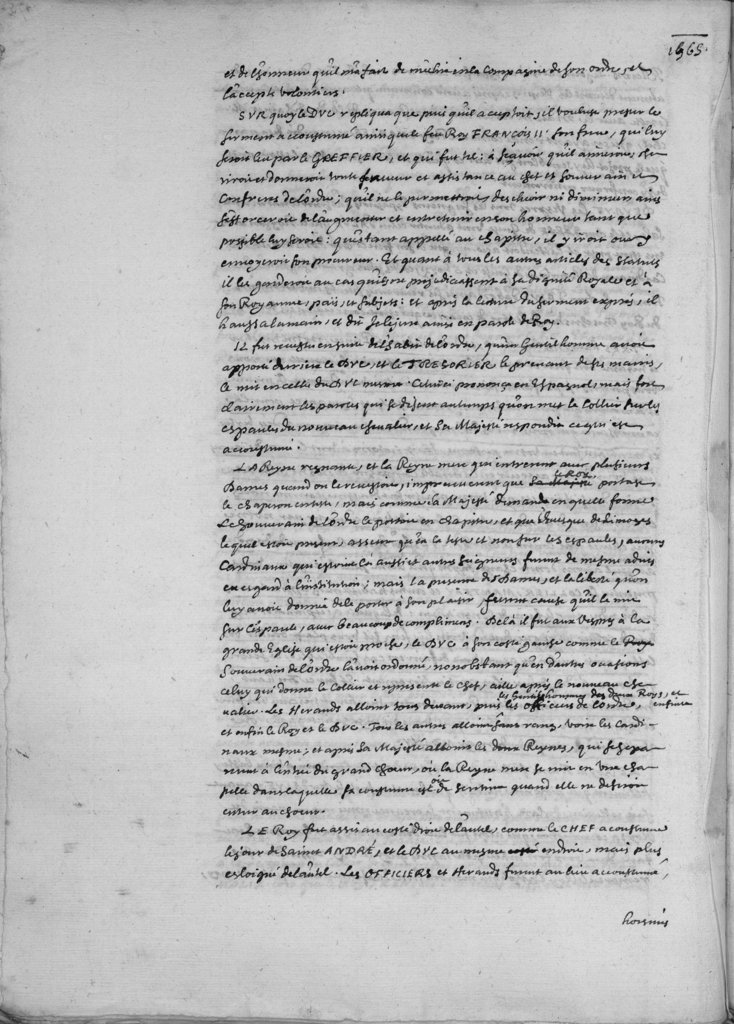 1565.
et de l'honneur qu'il m'a fait de m'eslire en la Compagnie de son ordre, et
l'accepte volontiers.
SVR quoy le DVC repliqua que puis qu'il acceptoit, il voulust prester le
serment accoustumé ainsi que le feu Roy FRANÇOIS II. son frere, qui luy
seroit leu par le GREFFIER, et qui fut tel: à sçavoir qu'il aimeroit,
et donneroit toute faveur et assistance au chef et souverain et
Confreres de l'ordre; qu'il ne le permettroit descheoir ni diminuer, ains
s'efforceroit de l'augmenter et entretenir en son honneur tant que
possible luy seroit: qu'estant appellé au chapitre, il y iroit ou y
envoyeroit son procureur. Et quant à tous les autres articles des Statuts
il les garderoit au cas qu'ils ne prejudiciassent à sa dignité Royale et à
son Royaume, païs, et subjets: et apres la lecture du serment exprés, il
haussa la main, et dit Je le jure ainsi en parole de Roy.
IL fut revestu en suite de l'habit de l'ordre, qu'un Gentilhomme avoit
apporté derriere le DVC, et le TRESORIER le prenant de ses mains,
le mit en celles du DVC mesme. Celui-ci prononça en Espagnol, mais fort
clairement les paroles qui se disent au temps qu'on met le Collier sur les
espaules du nouveau chevalier, et Sa Majesté respondit ce qui est
accoustumé.
LA Reyne regnante, et la Reyne mere qui entrerent avec plusieurs
Dames quand on le revestoit, improuverent que le ROY portast
le chaperon en teste, mais comme sa Majesté demanda en quelle forme
le Souverain de l'ordre le portoit en chapitre, et que l'Evesque de Limoges
lequel estoit present, asseura que en la teste et non sur les espaules, aucuns
Cardinaux qui estoient là aussi et autres Seigneurs furent de mesme advis
eu esgard à l'institution; mais la presence des Dames, et la liberté qu'on
luy avoit donnée de le porter à son plaisir furent cause qu'il le mit
sur l'espaule, avec beaucoup de complimens. De là il fut aux Vespres à la
grande Eglise qui estoit proche, le DVC à son costé gauche comme le
Souverain de l'ordre l'avoit ordonné, nonobstant qu'en d'autres occasions
celuy qui donne le Collier et represente le Chef, aille apres le nouveau che-
valier. Les Herauds alloient tous devant, puis les Gentilshommes des deux Roys, et en suite les officiers de l'ordre,
et enfin le Roy et le DVC. Tous les autres alloient sans rang, voire les Cardi-
naux mesme; et apres Sa Majesté alloient les deux Reynes, qui se sepa-
rerent à l'entrée du grand choeur, où la Reyne mere se mit en une cha-
pelle dans laquelle sa coustume est de se tenir quand elle ne desiroit
entrer au choeur.
LE Roy fut assis au costé droit de l'autel, comme le CHEF a coustume
le jour de Sainct ANDRÉ, et le DVC au mesme endroit, mais plus
esloigné de l'autel. Les OFFICIERS et Herauds furent au lieu accoustumé,
horsmis